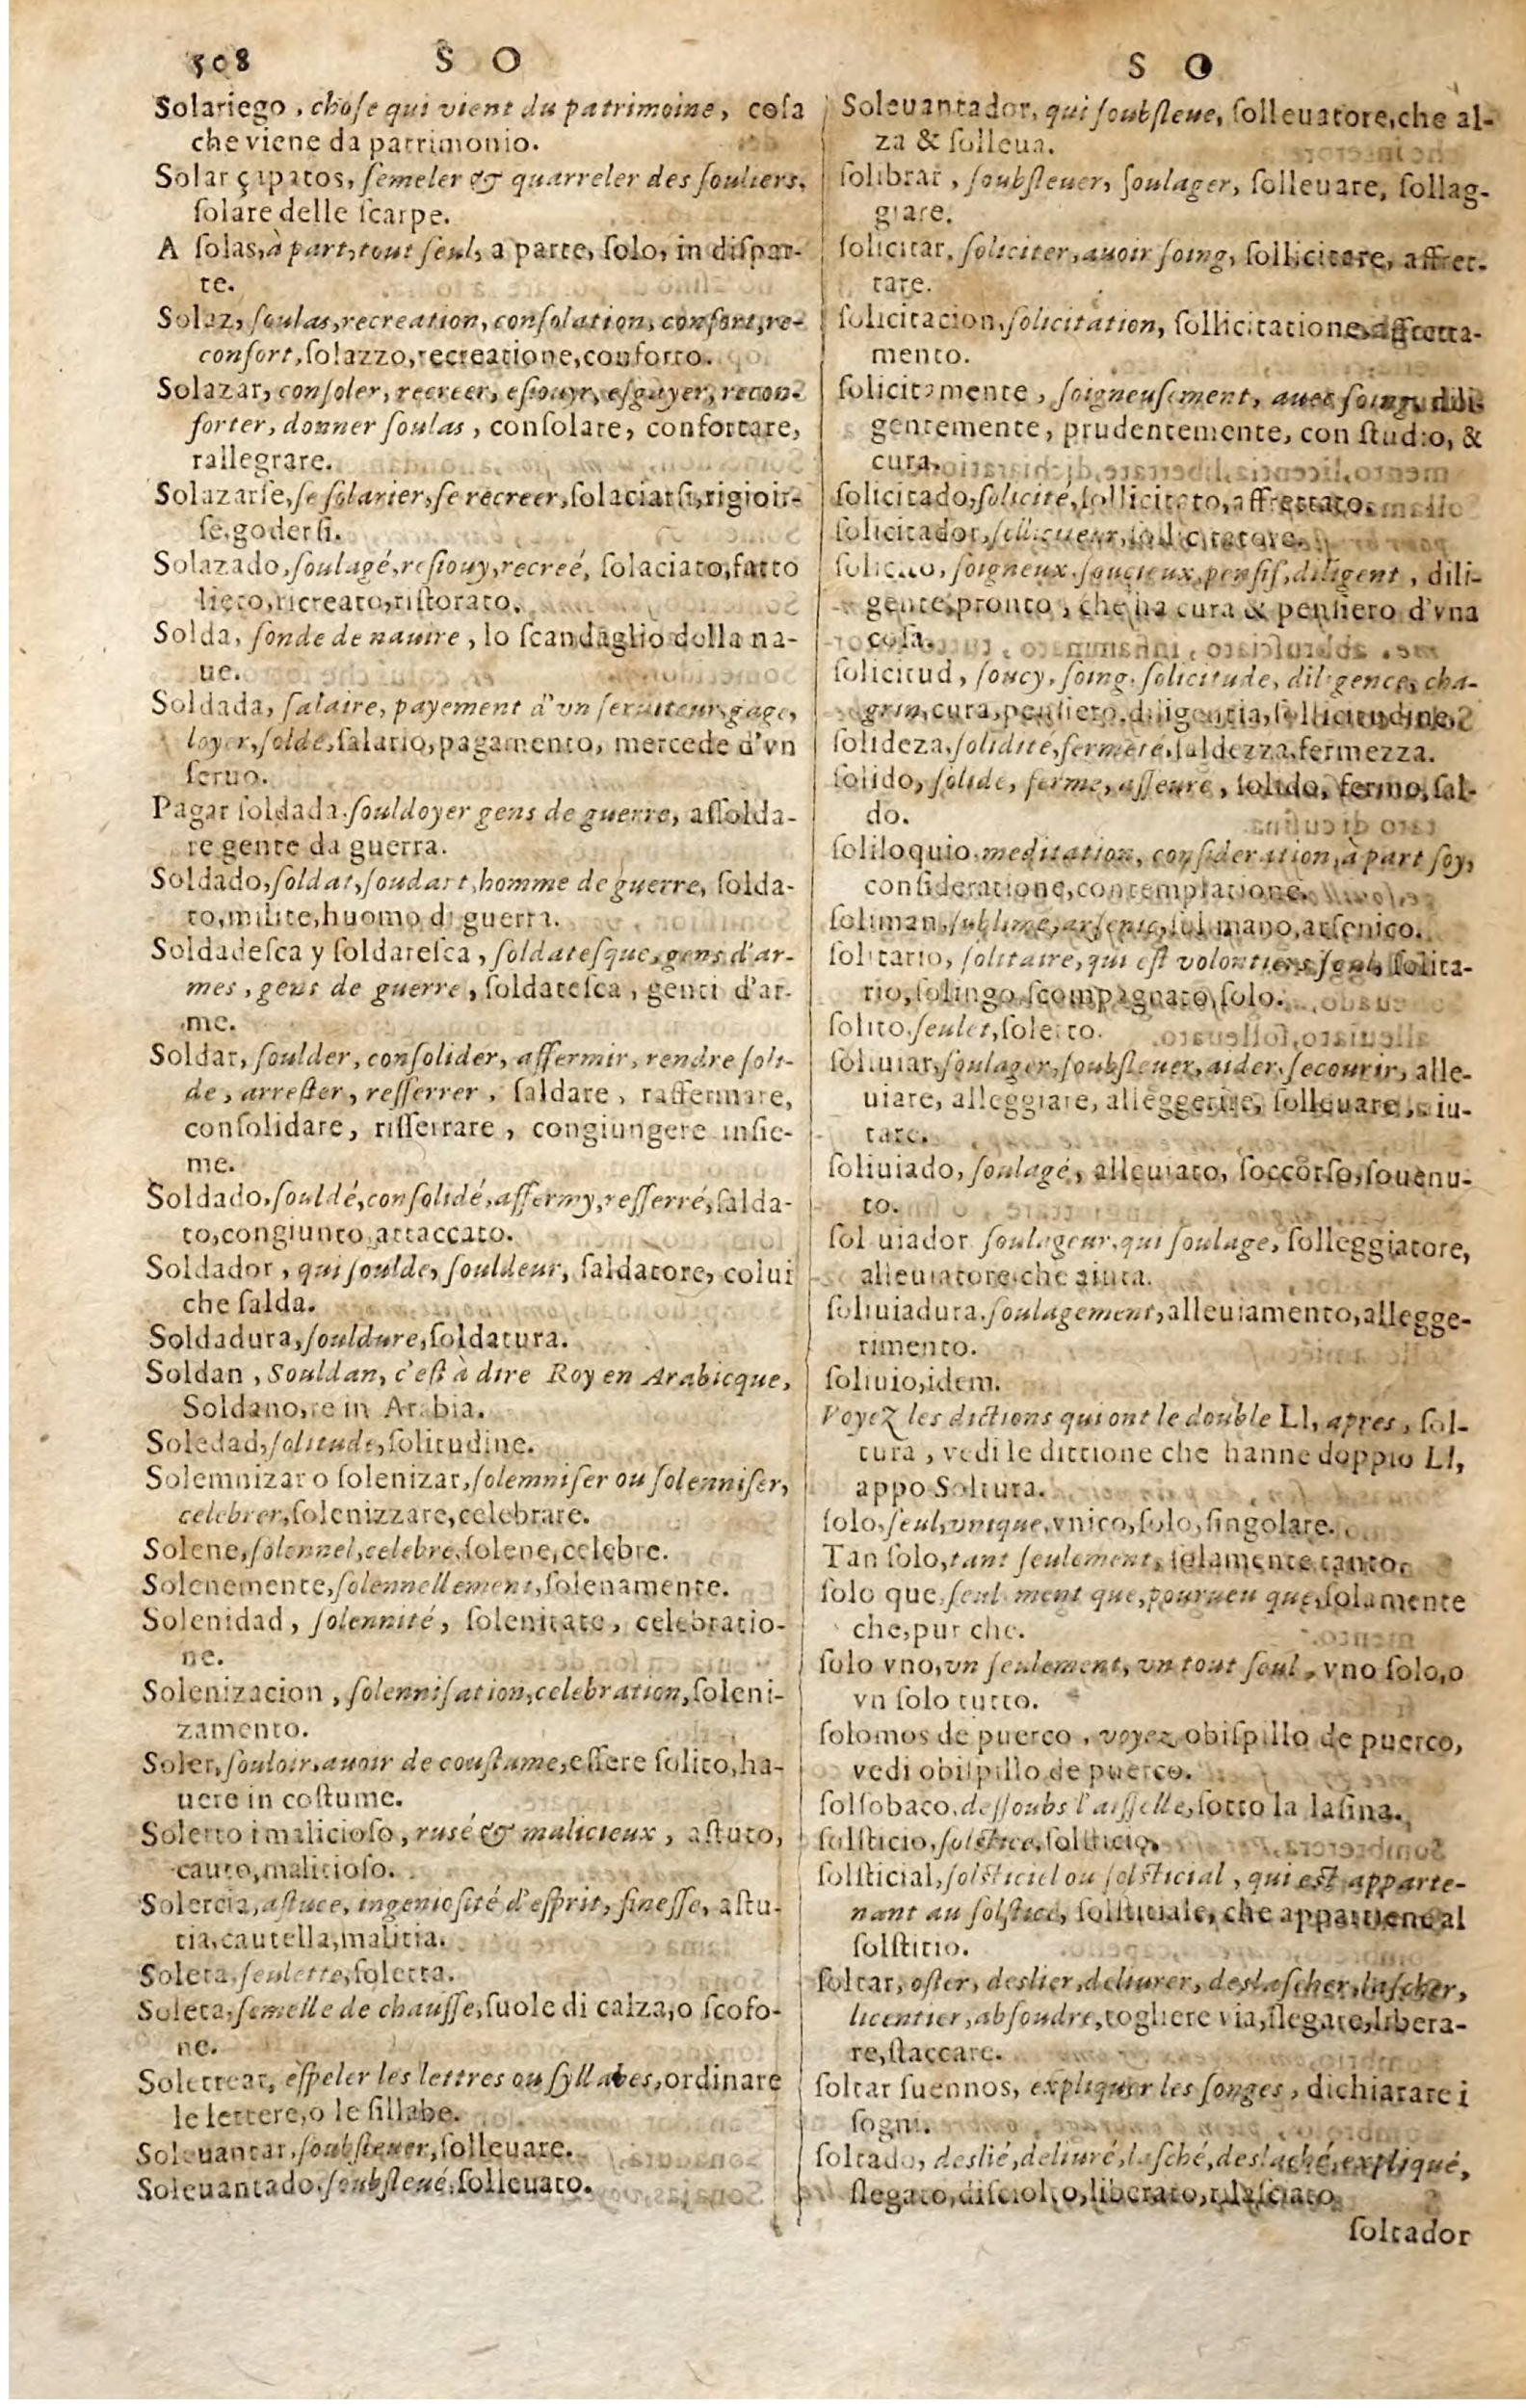 508 S O
Solariego, chose qui vient du patrimoine, cosa
che viene da patrimonio.
Solar çapatos, semeler & quarreler des souliers,
solare delle scarpe.
A solas, à part, tout seul, a parte, solo, in dispar-
te.
Solaz, soulas, recreation, consolation, confort, re-
confort, solazzo, recreatione, conforto.
Solazar, consoler, recreer, esiouyr, esgayer, recon-
forter, donner soulas, consolare, confortare,
rallegrare.
Solazarse, se solacier, se recreer, solaciarsi, rigioir-
se, godersi.
Solazado, soulagé, resiouy, recreé, solaciato, fatto
lieto, ricreato, ristorato.
Solda, sonde de nauire, lo scandaglio della na-
ue.
Soldada, salaire, payement d'vn seruiteur, gage,
loyer, solde, salario, pagamento, mercede d'vn
seruo.
Pagar soldada, souldoyer gens de guerre, assolda-
re gente da guerra.
Soldado, soldat, soudart, homme de guerre, solda-
to, milite, huomo di guerra.
Soldadesca y soldatesca, soldatesque, gens d'ar-
mes, gens de guerre, soldatesca, genti d'ar-
me.
Soldar, soulder, consolider, affermir, rendre soli-
de, arrester, resserrer, saldare, raffermare,
consolidare, risserrare, congiungere insie-
me.
Soldado, souldé, consolidé, affermy, resserré, salda-
to, congiunto, attaccato.
Soldador, qui soulde, souldeur, saldatore, colui
che salda.
Soldadura, souldure, soldatura.
Soldan, Souldan, c'est à dire Roy en Arabicque,
Soldano, re in Arabia.
Soledad, solitude, solitudine.
Solemnizar o solenizar, solemniser ou solenniser,
celebrer, solenizzare, celebrare.
Solene, solennel, celebre, solene, celebre.
Solenemente, solennellement, solenamente.
Solenidad, solennité, solenitate, celebratio-
ne.
Solenizacion, solennisation, celebration, soleni-
zamento.
Soler, souloir, auoir de coustume, essere solito, ha-
uere in costume.
Solerto i malicioso, rusé & malicieux, astuto,
cauto, malitioso.
Solercia, astuce, ingeniosité d'esprit, finesse, astu-
tia, cautella, malitia.
Soleta, seulette, soletta.
Soleta, semelle de chausse, suole di calza, o scofo-
ne.
Soletrear, espeler les lettres ou syllabes, ordinare
le lettere, o le sillabe.
Soleuantar, soubsleuer, solleuare.
Soleuantado, soubsleué, solleuato.
S O
Soleuantador, qui soubsleue, solleuatore, che al-
za & solleua.
solibrar, soubsleuer, soulager, solleuare, sollag-
giare.
solicitar, soliciter, auoir soing, sollicitare, affret-
tare.
solicitacion, solicitation, sollicitatione, affretta-
mento.
solicitamente, soigneusement, auec soing, dili-
gentemente, prudentemente, con studio, &
cura.
solicitado, solicité, sollicitato, affrettato.
solicitador, solliciteur, sollicitatore.
solicito, soigneux, soucieux, pensif, diligent, dili-
gente, pronto, che ha cura & pensiero d'vna
cosa.
solicitud, soucy, soing, solicitude, diligence, cha-
grin, cura, pensiero, diligentia, sollicitudine.
solideza, solidité, fermeté, saldezza, fermezza.
solido, solide, ferme, asseuré, solido, fermo, sal-
do.
soliloquio, meditation, consideration, à part soy,
consideratione, contemplatione.
soliman, sublimé, arsenic, solimano, arsenico.
solitario, solitaire, qui est volontiers seul, solita-
rio, solingo, scompagnato, solo.
solito, seulet, soletto.
soliuiar, soulager, soubsleuer, aider, secourir, alle-
uiare, alleggiare, alleggerire, solleuare, aiu-
tare.
soliuiado, soulagé, alleuiato, soccorso, souenu-
to.
soliuiador, soulageur, qui soulage, solleggiatore,
alleuiatore, che aiuta.
soliuiadura, soulagement, alleuiamento, allegge-
rimento.
soliuio, idem.
Voyez les dictions qui ont le double Ll, apres, sol-
tura, vedi le dittione che hanne doppio Ll,
appo Soltura.
solo, seul, vnique, vnico, solo, singolare.
Tan solo, tant seulement, solamente tanto.
solo que, seulement que, pourueu que, solamente
che, pur che.
solo vno, vn seulement, vn tout seul, vno solo, o
vn solo tutto.
solomos de puerco, voyez obispillo de puerco,
vedi obispillo de puerco.
solsobaco, dessoubs l'aisselle, sotto la lasina.
solsticio, solstice, solstitio.
solsticial, solsticiel ou solsticial, qui est apparte-
nant au solstice, solstitiale, che appartiene al
solstitio.
soltar, oster, deslier, deliurer, deslascher, lascher,
licentier, absoudre, togliere via, slegare, libera-
re, staccare.
soltar suennos, expliquer les songes, dichiarare i
sogni.
soltado, deslié, deliuré, lasché, deslaché, expliqué,
slegato, disciolto, liberato, rilasciato
soltador